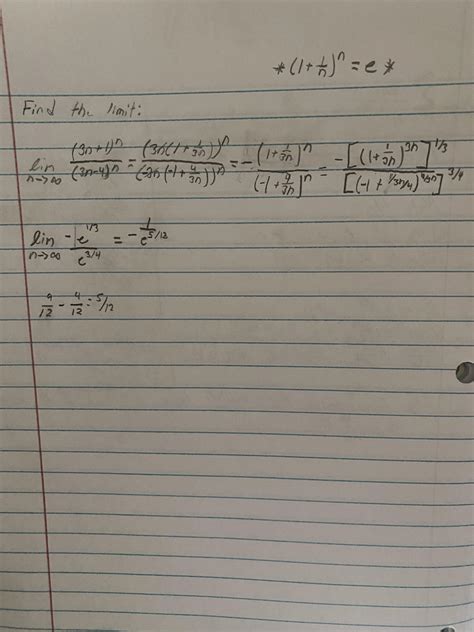 * (1 + 1/n)^n = e *
Find the limit:
lim n→∞ (3n+1)^n / (3n-4)^n = (3n(1 + 1/3n))^n / (-3n(-1 + 4/3n))^n = - (1 + 1/3n)^n / (-1 + 4/3n)^n = - [(1 + 1/3n)^3n]^1/3 / [(-1 + 1/3n/4)^4/3n]^3/4
lim n→∞ - e^1/3 / e^3/4 = - 1/e^5/12
9/12 - 4/12 = 5/12